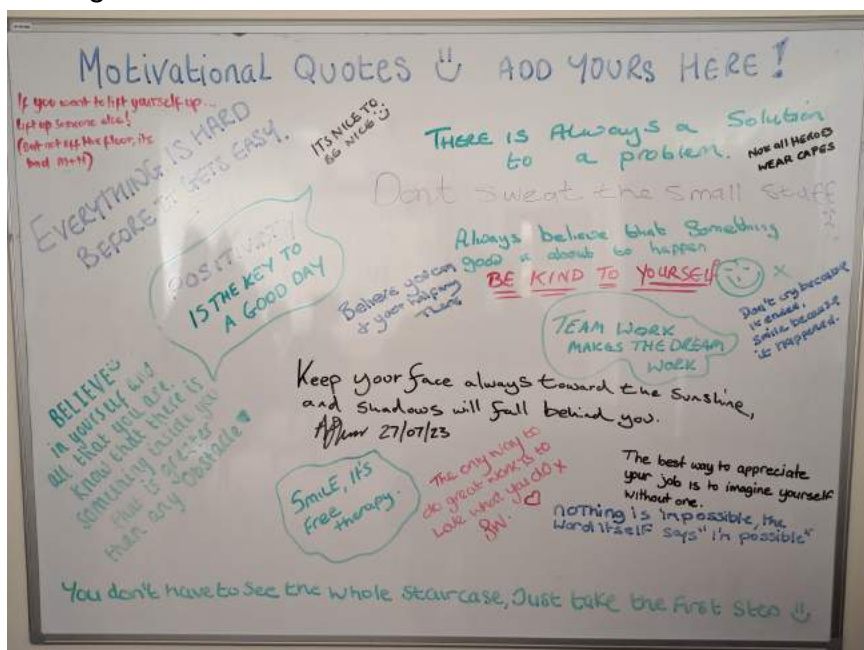 Motivational Quotes ADD YOURS HERE!
If you want to lift yourself up...
lift up someone else!
(but not off the floor, its
bad M+H)
EVERYTHING IS HARD
BEFORE IT GETS EASY.
ITS NICE TO
BE NICE
THERE IS ALWAYS a Solution
to a problem.
Not all HEROES
WEAR CAPES
Don't sweat the small stuff
Always believe that something
good is about to happen
POSITIVITY
IS THE KEY TO
A GOOD DAY
Believe you can
& your halfway
There
BE KIND TO YOURSELF x
Don't cry because
it ended,
smile because
it happened.
TEAM WORK
MAKES THE DREAM
WORK
BELIEVE
in yourself and
all that you are.
Know that there is
something inside you
that is greater
than any obstacle
Keep your face always toward the sunshine,
and shadows will fall behind you.
27/07/23
SMILE, it's
free
therapy.
The only way to
do great work is to
Love what you do x
The best way to appreciate
your job is to imagine yourself
without one.
nothing is impossible, the
word itself says "i'm possible"
You don't have to see the whole staircase, Just take the first step